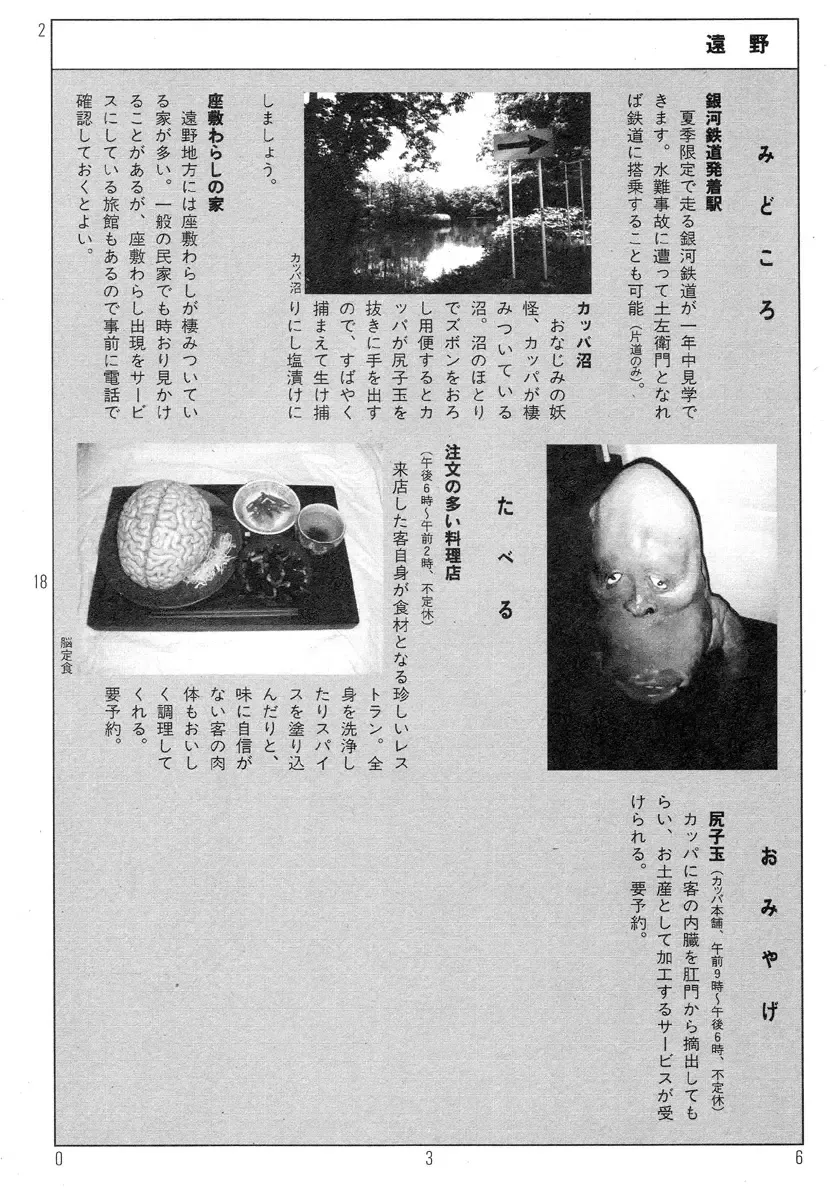 2
遠野
みどころ
銀河鉄道発着駅
夏季限定で走る銀河鉄道が一年中見学で
きます。水難事故に遭って土左衛門となれ
ば鉄道に搭乗することも可能（片道のみ）。
カッパ沼
おなじみの妖
怪、カッパが棲
みついている
沼。沼のほとり
でズボンをおろ
し用便するとカ
ッパが尻子玉を
抜きに手を出す
ので、すばやく
捕まえて生け捕
りにし塩漬けに
しましょう。
カッパ沼
座敷わらしの家
遠野地方には座敷わらしが棲みついてい
る家が多い。一般の民家でも時おり見かけ
ることがあるが、座敷わらし出現をサービ
スにしている旅館もあるので事前に電話で
確認しておくとよい。
たべる
注文の多い料理店
（午後6時～午前2時、不定休）
来店した客自身が食材となる珍しいレス
トラン。全
身を洗浄し
たりスパイ
スを塗り込
んだりと、
味に自信が
ない客の肉
体もおいし
く調理して
くれる。
要予約。
脳定食
おみやげ
尻子玉（カッパ本舗、午前9時～午後6時、不定休）
カッパに客の内臓を肛門から摘出しても
らい、お土産として加工するサービスが受
けられる。要予約。
18
0
3
6